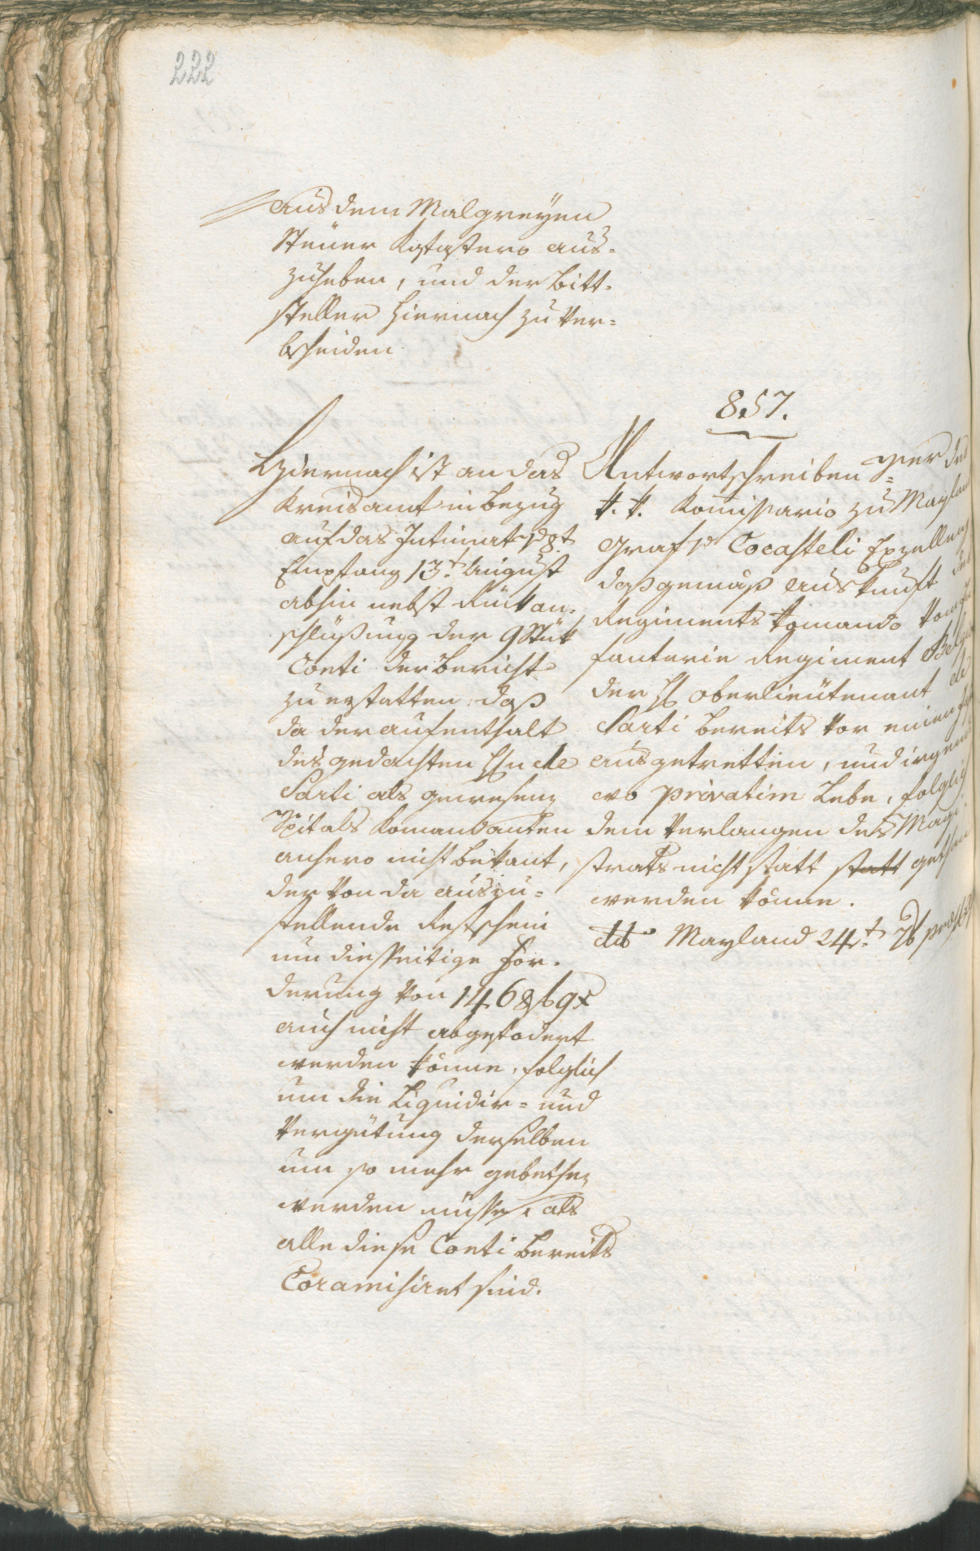 222
aus dem Malgreyen
Steuer Katastero aus-
zuheben, und der Bitt-
steller hiernach zu ver-
bscheiden
Hiernach ist an das
Kreisamt in bezug
auf das Intimat
Empfang 13t August
abhin nebst Rükan-
schlüßung der 9 Stük
Conti der Bericht
zu erstatten: daß
da der aufenthalt
des gedachten H: de
Sarti als gewesenen
Spitals Komandanten
anhero nicht bekant,
der von da auszu-
stellende Restschein
um diesseitige For-
derung von 146 f
auch nicht abgefodert
werden könne, folglich
um die Liquidir- und
Vergütung derselben
um so mehr gebethen
werden müsse, als
alle diese Conti bereits
Coramisiret sind.
857.
Antwortschreiben
k. k. Komissario zu Mayland
Graf v Cocasteli Exzellenz
daß gemäß auskunft des
Regiments Komando vom
fanterie Regiment
der H oberlieutenant de
Sarti bereits vor einem
ausgetretten, und irgend
wo privatim Lebe, folglich
dem Verlangen des Magi
strats nicht statt statt
werden könne.
ddo Mayland 24t